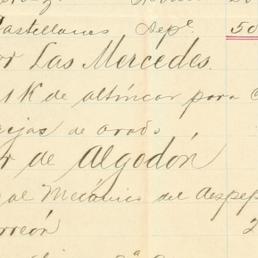 Castellanos Depº. 50
Las Mercedes
1 K de altincar para
rejas de arado
de Algodón
al Mecánico del Despep
orreón
2